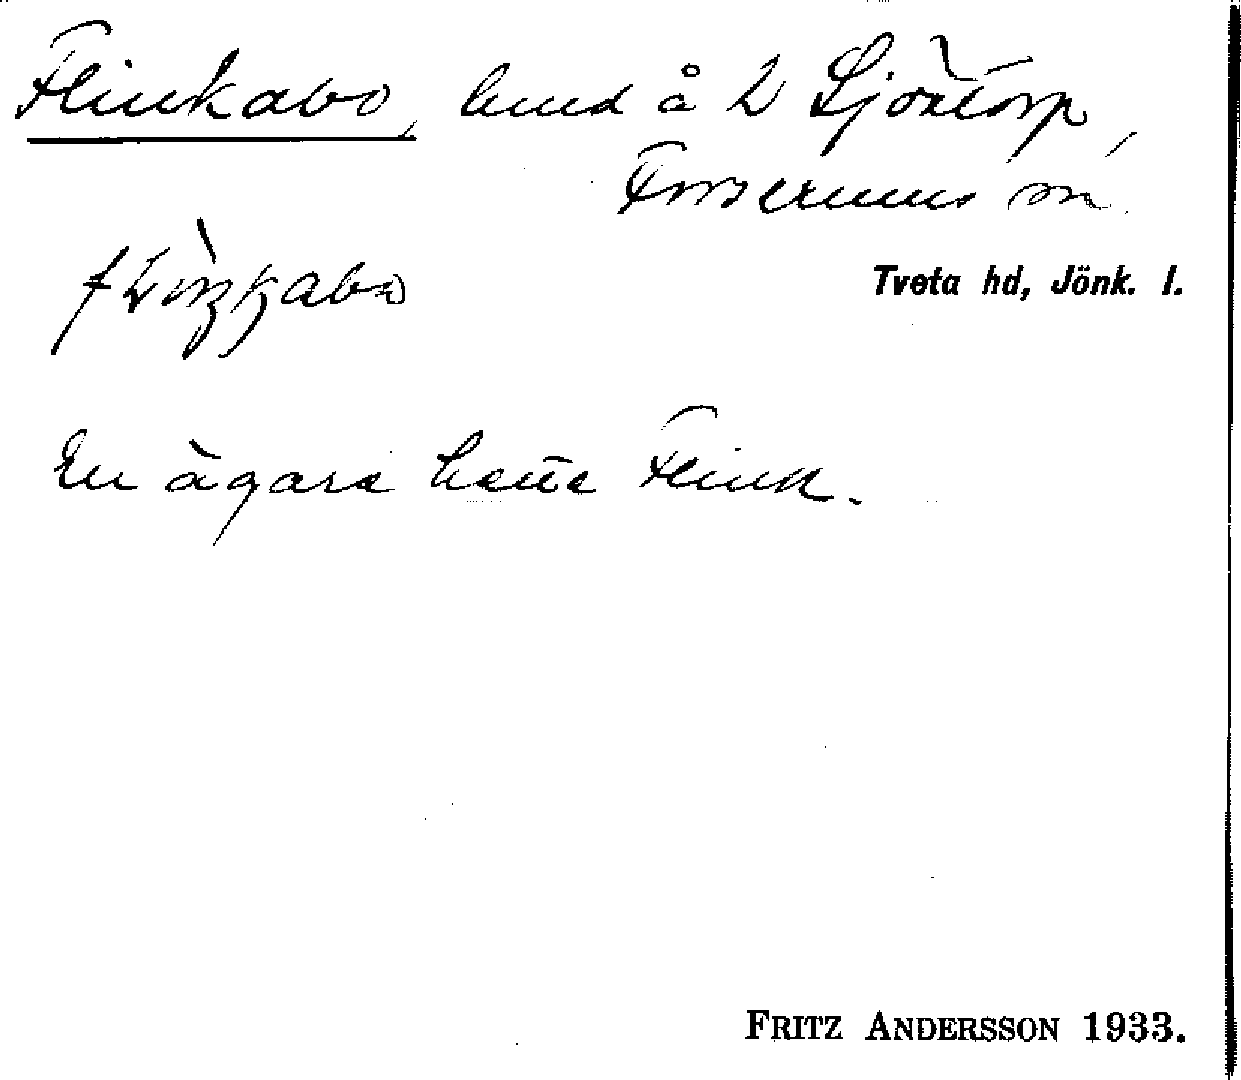 Flinkabo, lund å 2 Sjötorp,
Forserums sn
Tveta hd, Jönk. l.
En ägare hette Flink.
FRITZ ANDERSSON 1933.